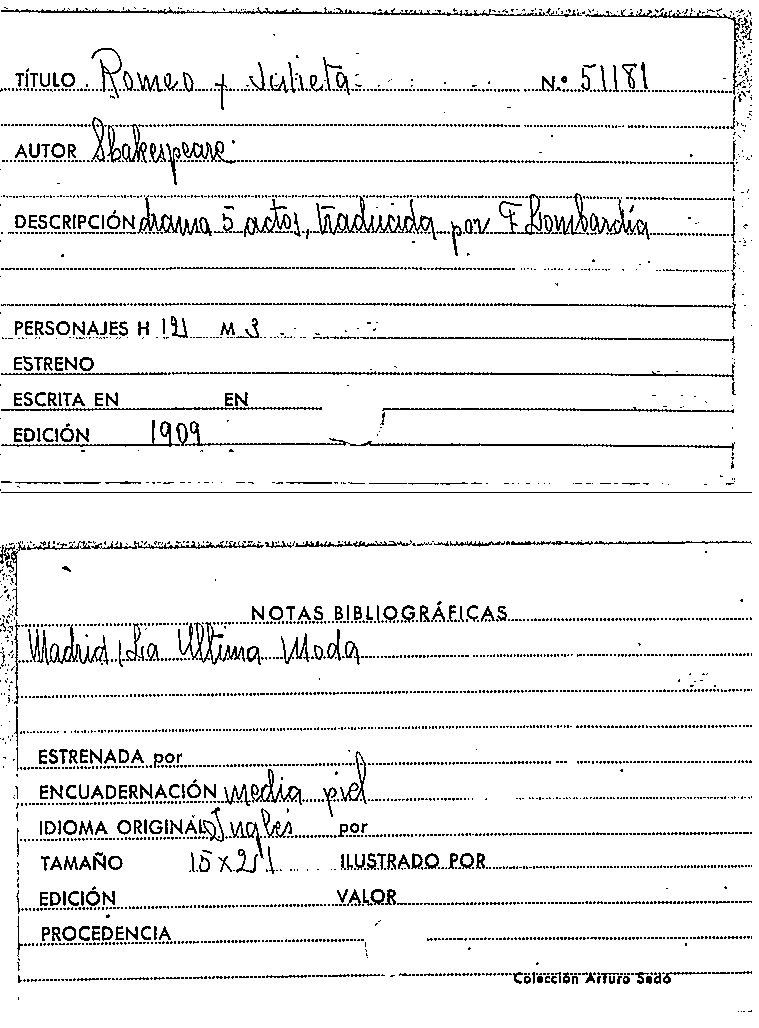 TÍTULO Romeo y Julieta N.º 51181
AUTOR Shakespeare
DESCRIPCIÓN drama 5 actos, traducida por F Lombardía
PERSONAJES H M 3
ESTRENO
ESCRITA EN EN
EDICIÓN 1909
NOTAS BIBLIOGRÁFICAS
Madrid, La Ultima Moda
ESTRENADA por
ENCUADERNACIÓN media piel
IDIOMA ORIGINAL Inglés por
TAMAÑO ILUSTRADO POR
EDICIÓN VALOR
PROCEDENCIA
Colección Arturo Sedó